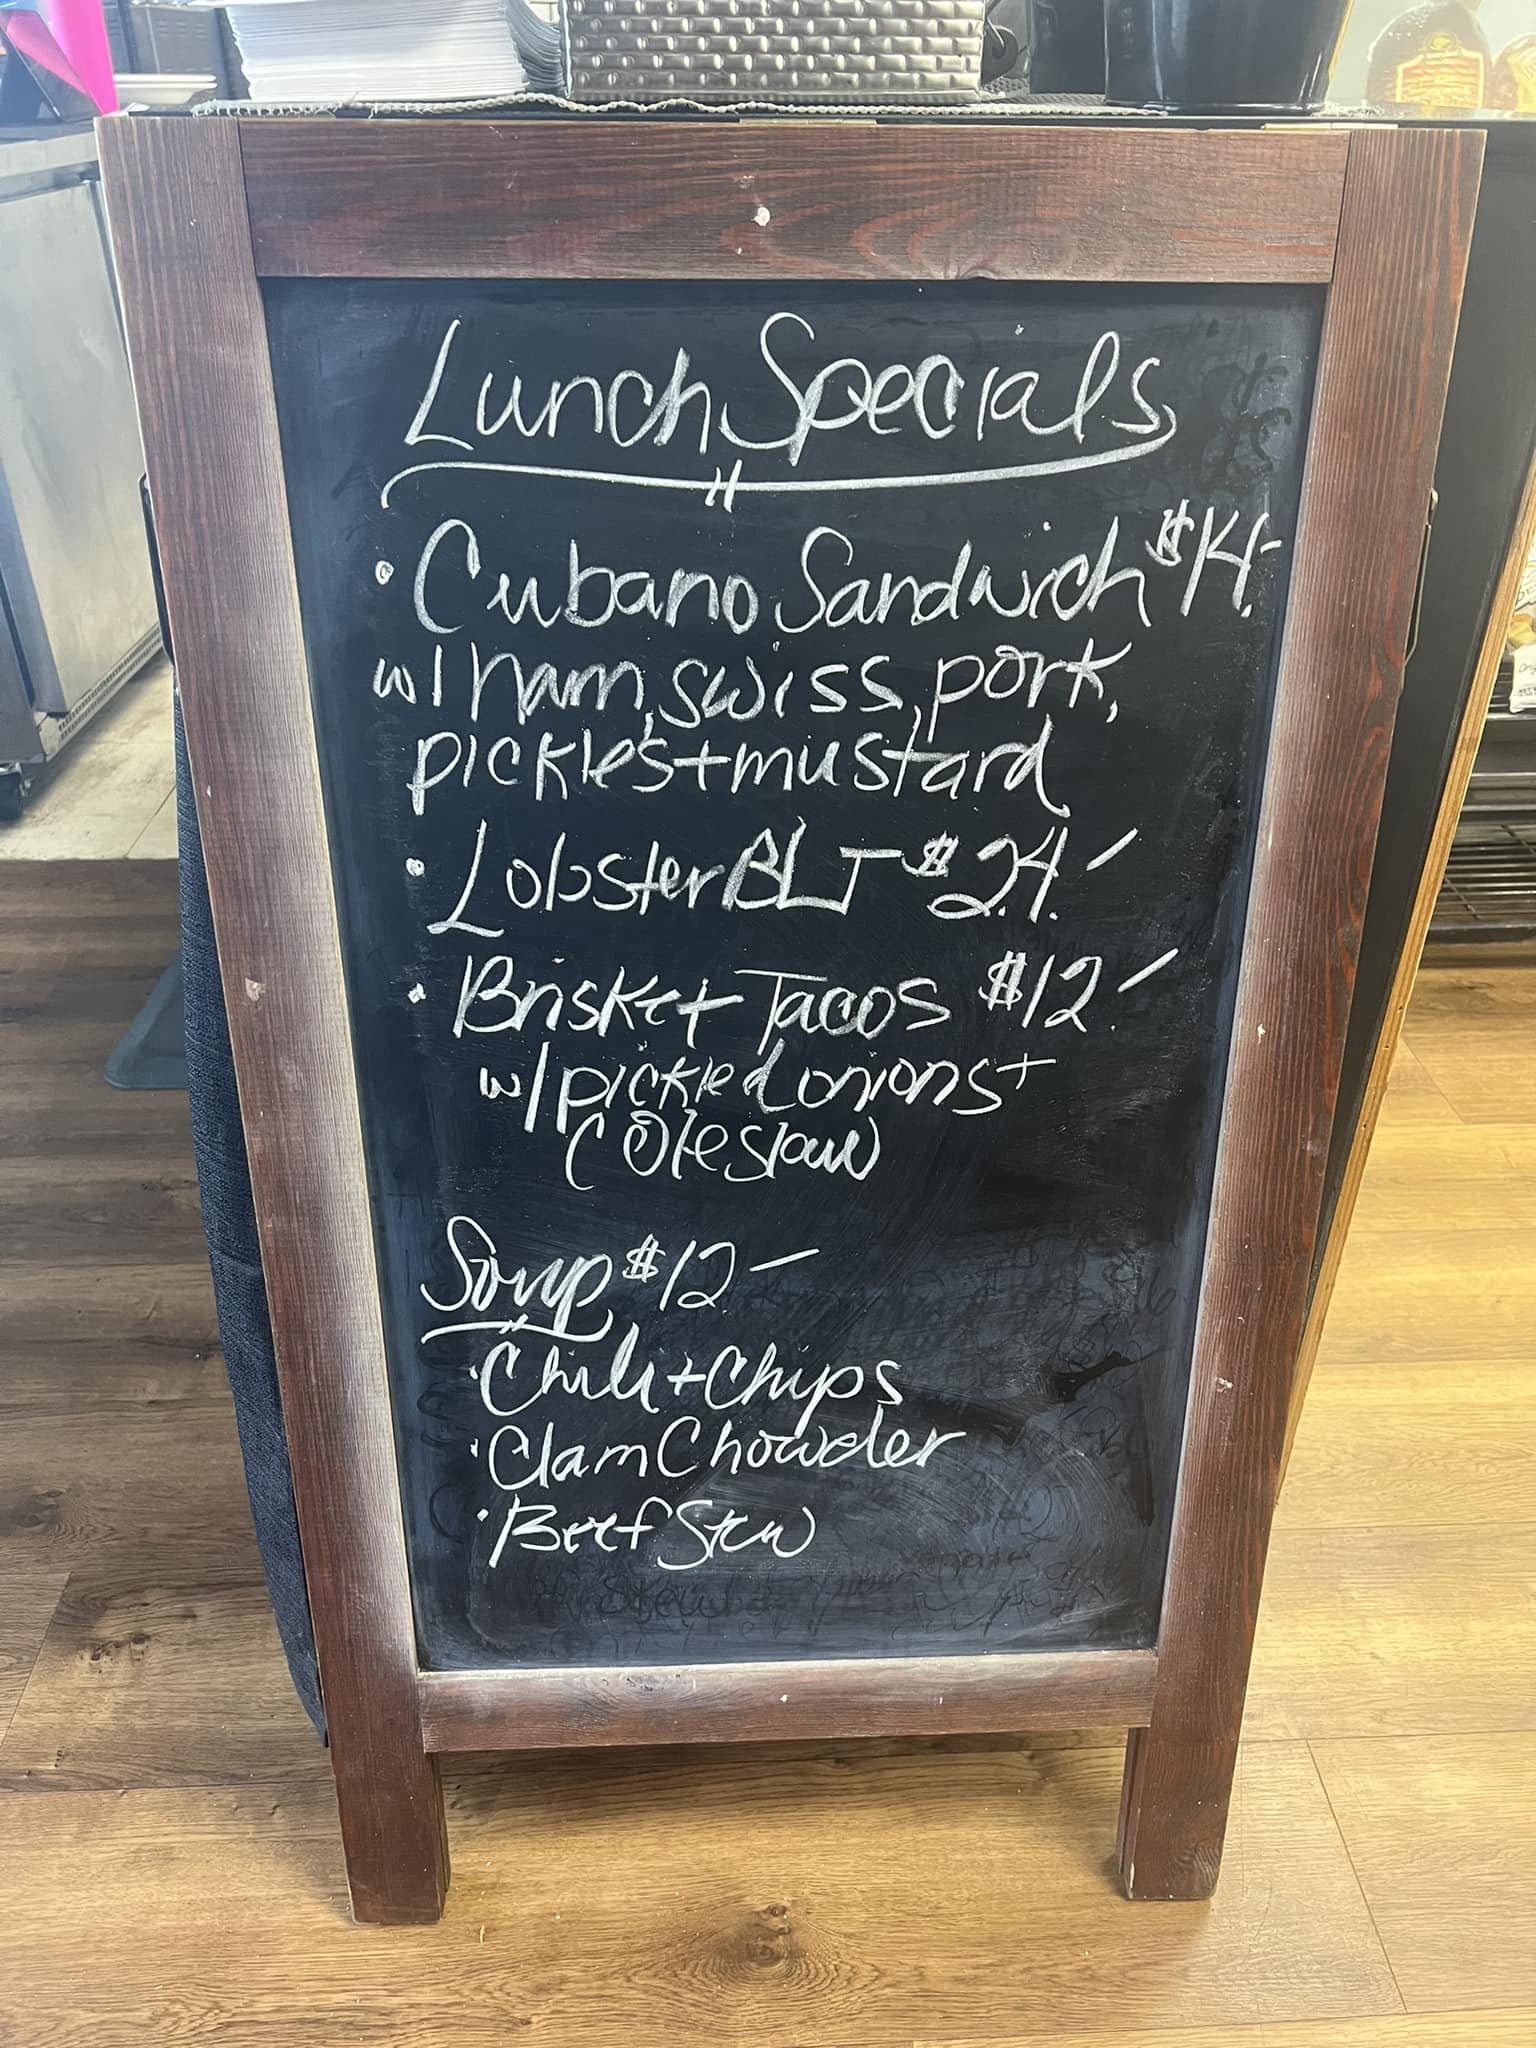 Lunch Specials
• Cubano Sandwich $14.-
w/ ham, swiss, pork,
pickles + mustard
• Lobster BLT $24.-
• Brisket Tacos $12.-
w/ pickled onions +
Coleslaw
Soup $12-
• Chili + Chips
• Clam Chowder
• Beef Stew